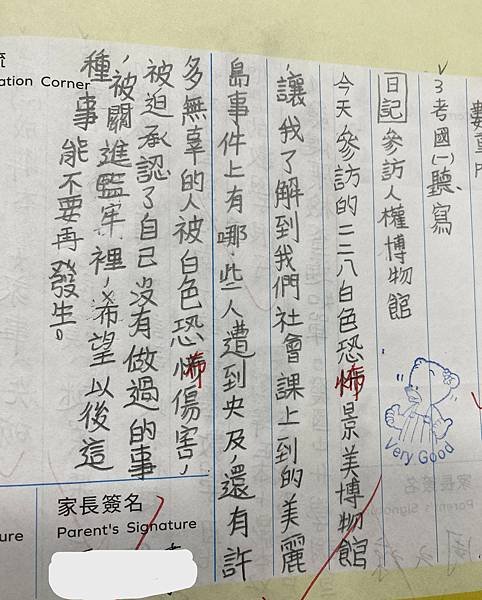 3考國(一)聽寫
日記 參訪人權博物館
今天參訪的二二八白色恐怖景美博物館
，讓我了解到我們社會課上到的美麗
島事件上有哪些人遭到央及，還有許
多無辜的人被白色恐怖傷害，
被迫承認了自己沒有做過的事
，被關進監牢裡，希望以後這
種事能不要再發生。
ation Corner
家長簽名
Parent's Signature
Very Good
家長簽名
Parent's